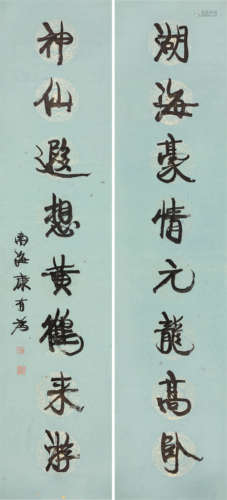 湖海豪情元龍高卧
神仙遐想黄鶴来游
南海康有為